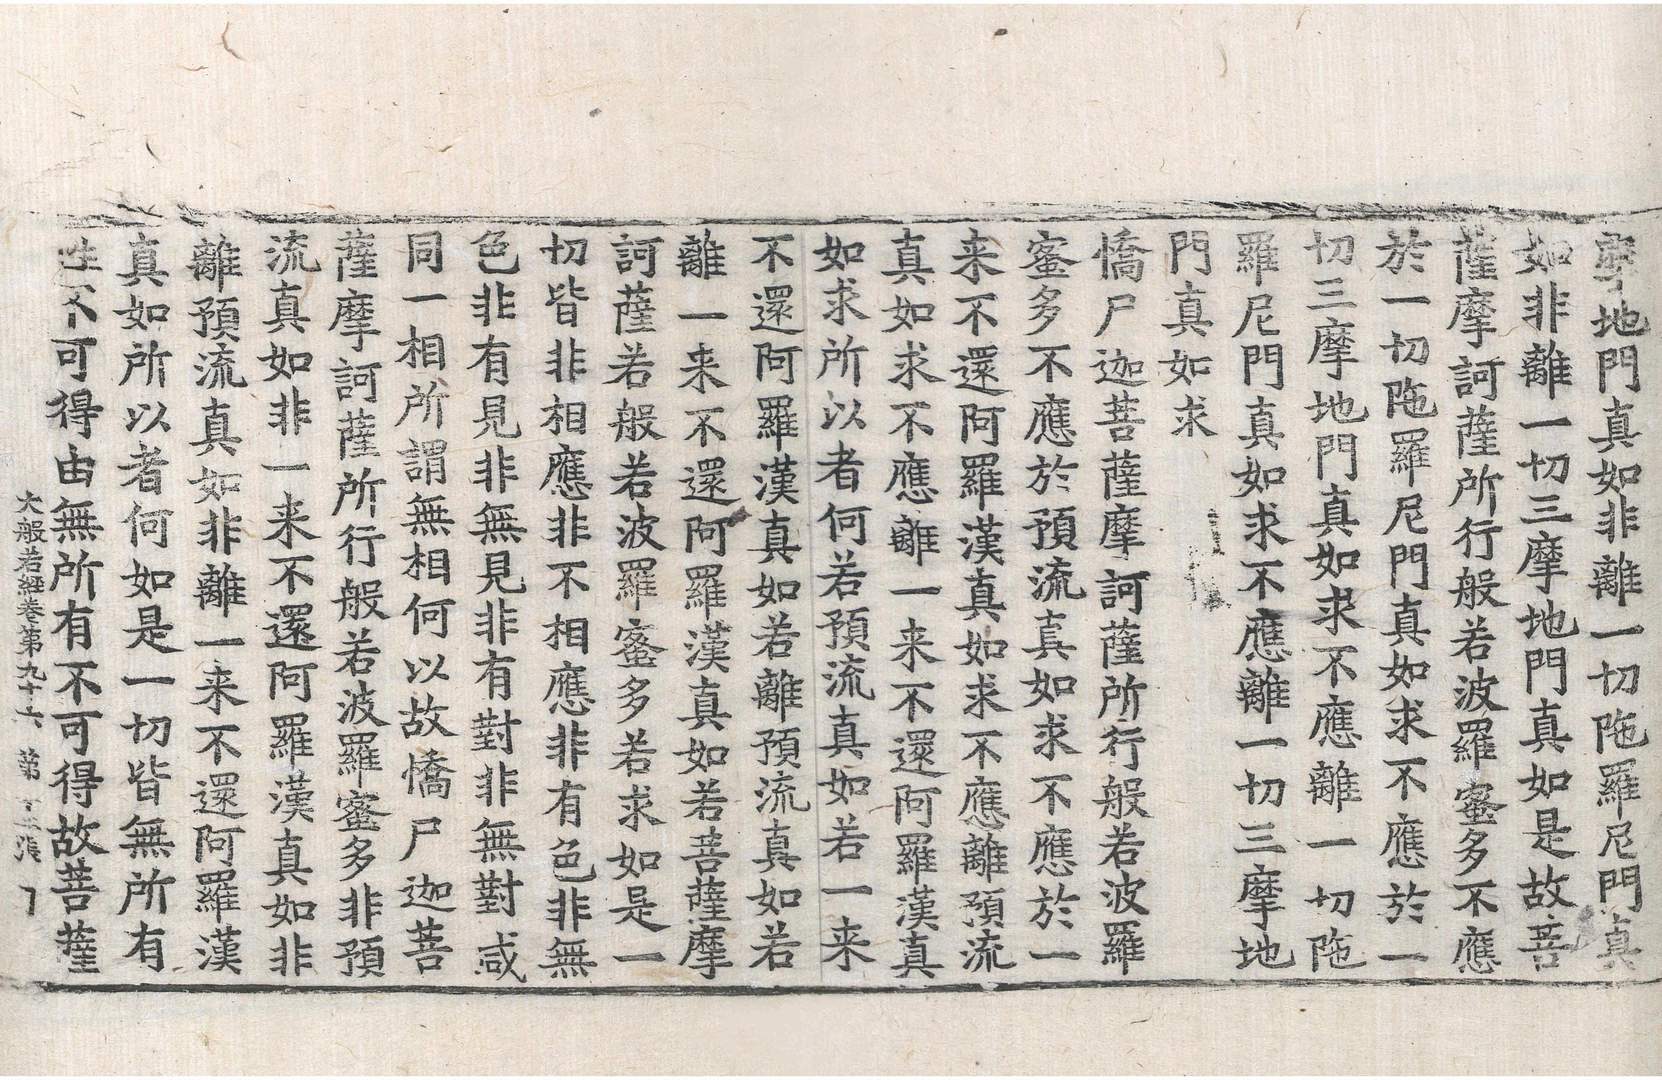 摩地門真如非離一切陁羅尼門真
如非離一切三摩地門真如是故菩
薩摩訶薩所行般若波羅蜜多不應
於一切陁羅尼門真如求不應於一
切三摩地門真如求不應離一切陁
羅尼門真如求不應離一切三摩地
門真如求
憍尸迦菩薩摩訶薩所行般若波羅
蜜多不應於預流真如求不應於一
来不還阿羅漢真如求不應離預流
真如求不應離一来不還阿羅漢真
如求所以者何若預流真如若一来
不還阿羅漢真如若離預流真如若
離一来不還阿羅漢真如若菩薩摩
訶薩若般若波羅蜜多若求如是一
切皆非相應非不相應非有色非無
色非有見非無見非有對非無對咸
同一相所謂無相何以故憍尸迦菩
薩摩訶薩所行般若波羅蜜多非預
流真如非一来不還阿羅漢真如非
離預流真如非離一来不還阿羅漢
真如所以者何如是一切皆無所有
性不可得由無所有不可得故菩薩
大般若經卷第九十六 第十二張